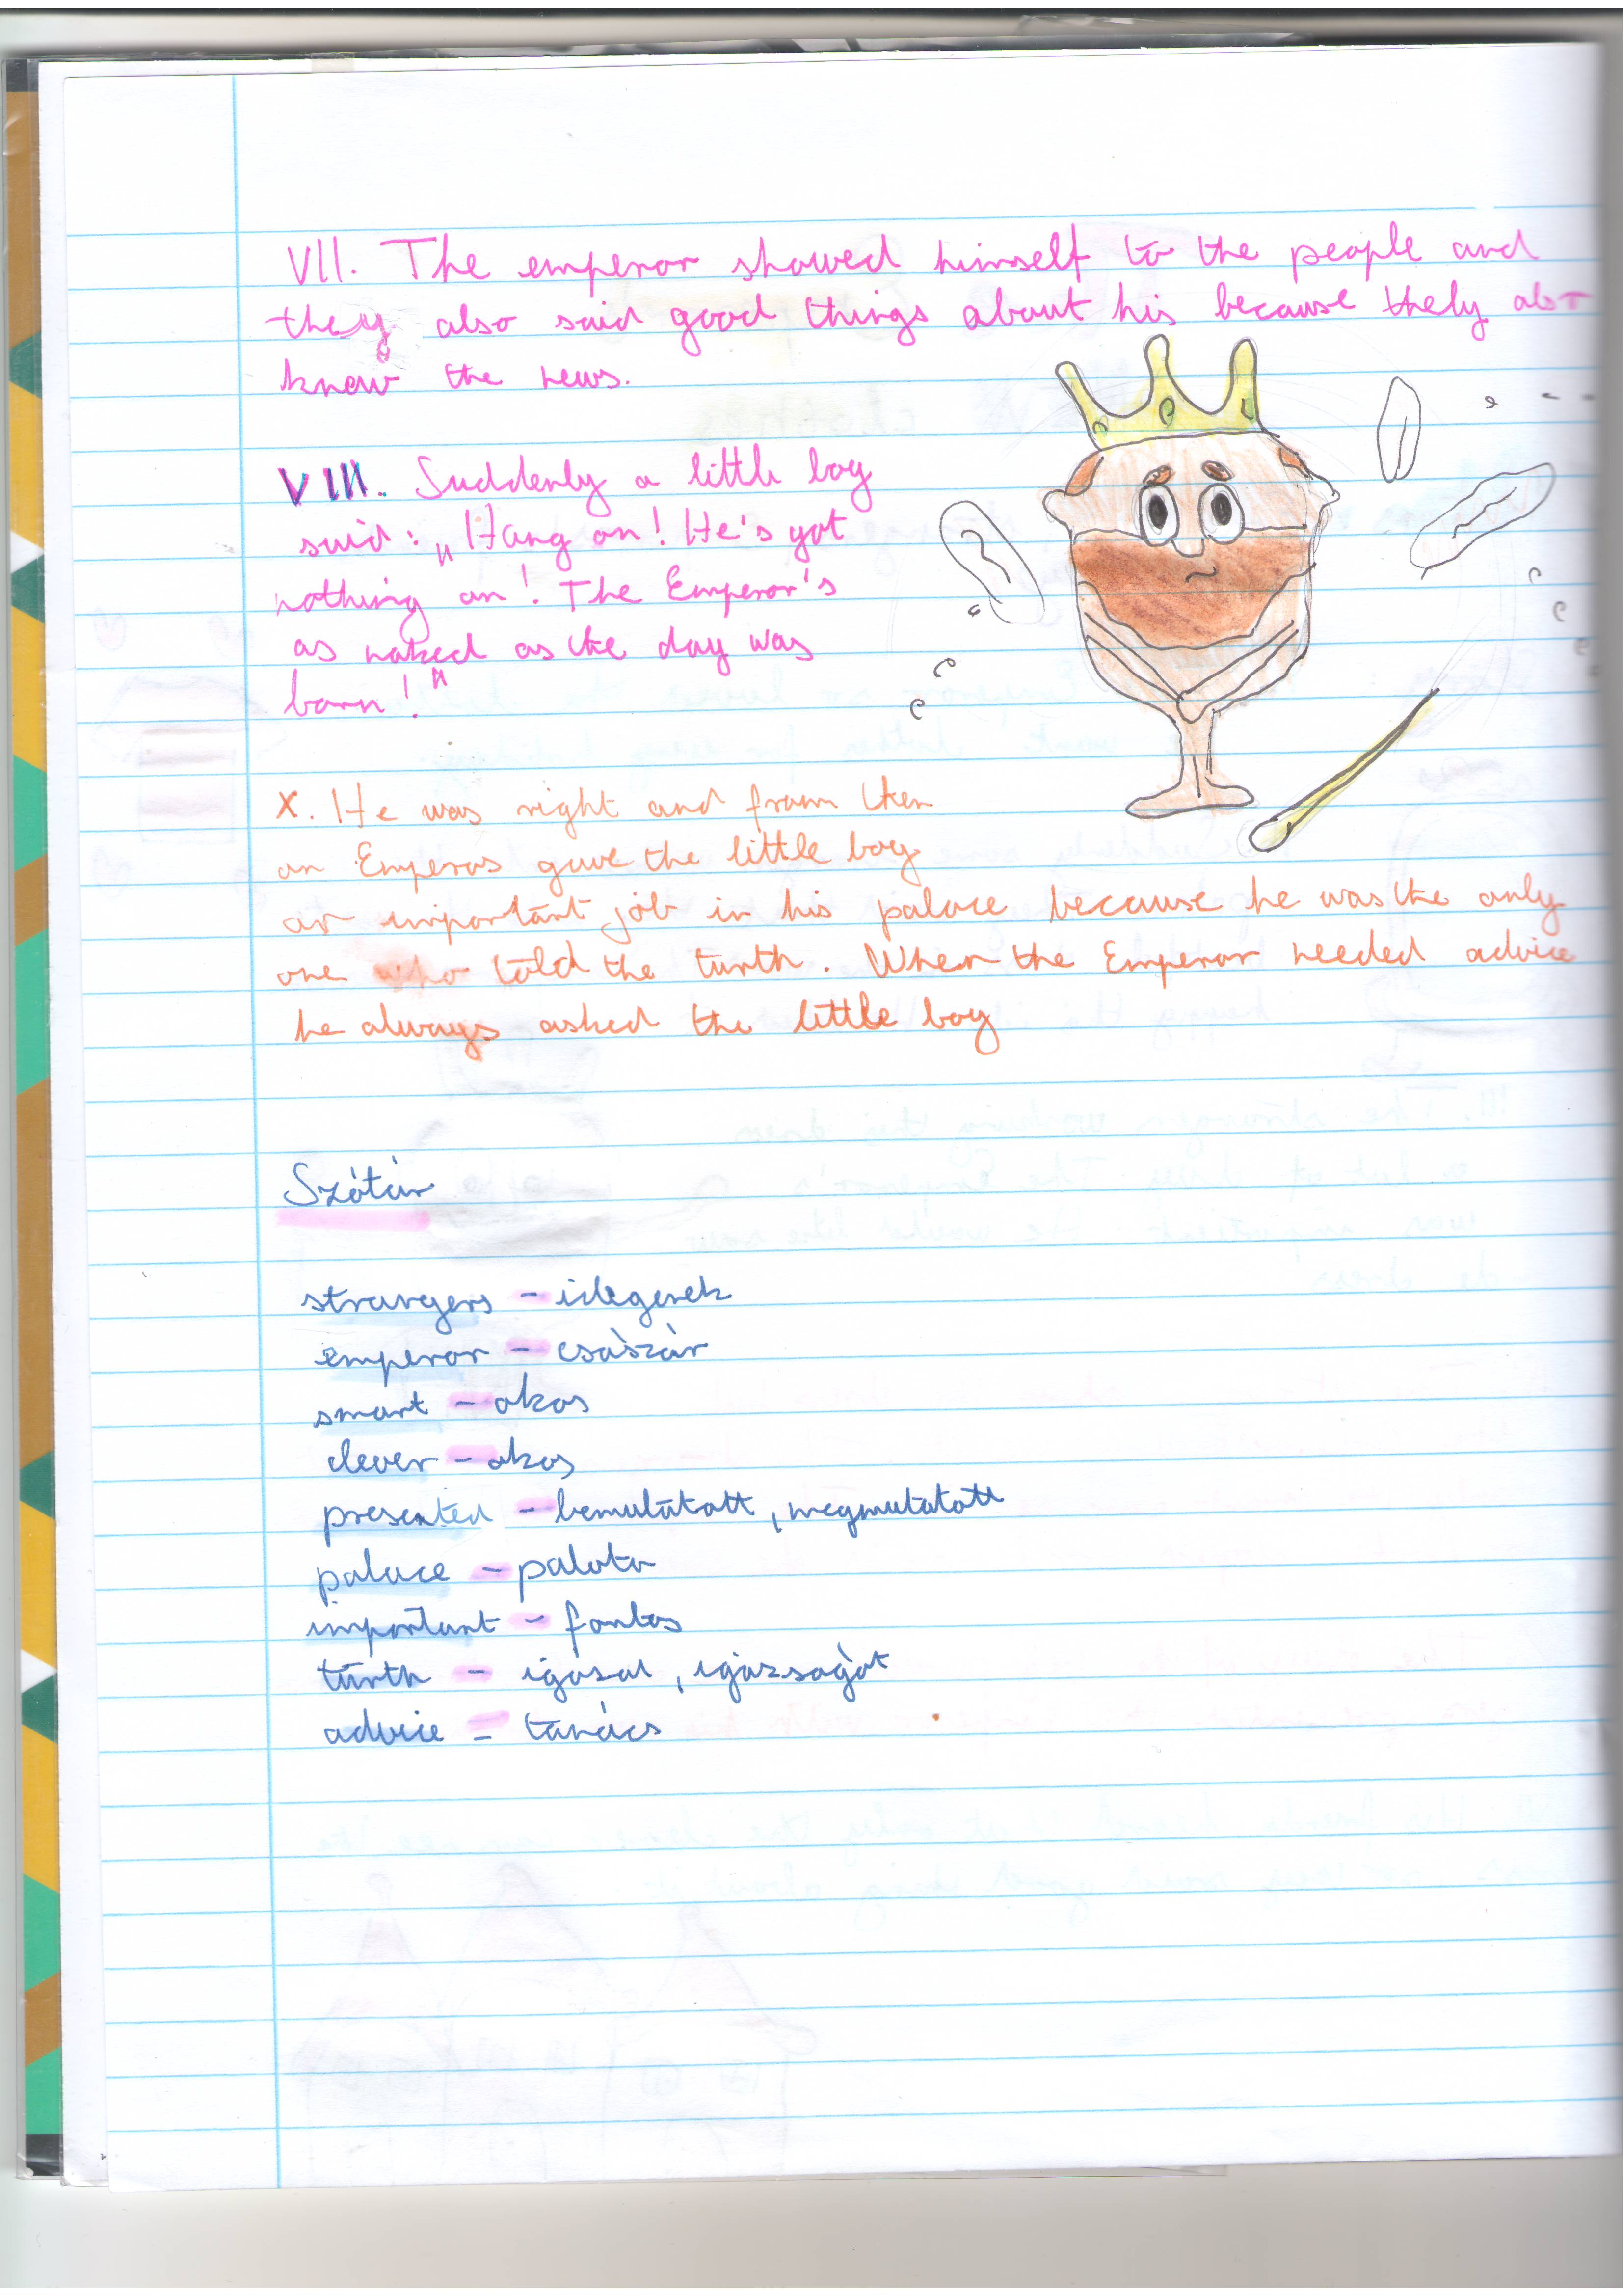 VII. The emperor showed himself to the people and
they also said good things about his because thely also
know the news.
VIII. Suddenly a little boy
said: „Hang on! He's got
nothing on! The Emperor's
as naked as the day was
born!"
X. He was right and from then
on Emperos gave the little boy
an important job in his palace because he was the only
one who told the turth. When the Emperor needed advice
he always asked the little boy
Szótár
strangers - idegenek
emperor - császár
smart - okos
clever - okos
presented - bemutatott, megmutatott
palace - palota
important - fontos
turth - igazat, igazságot
advice - tanács